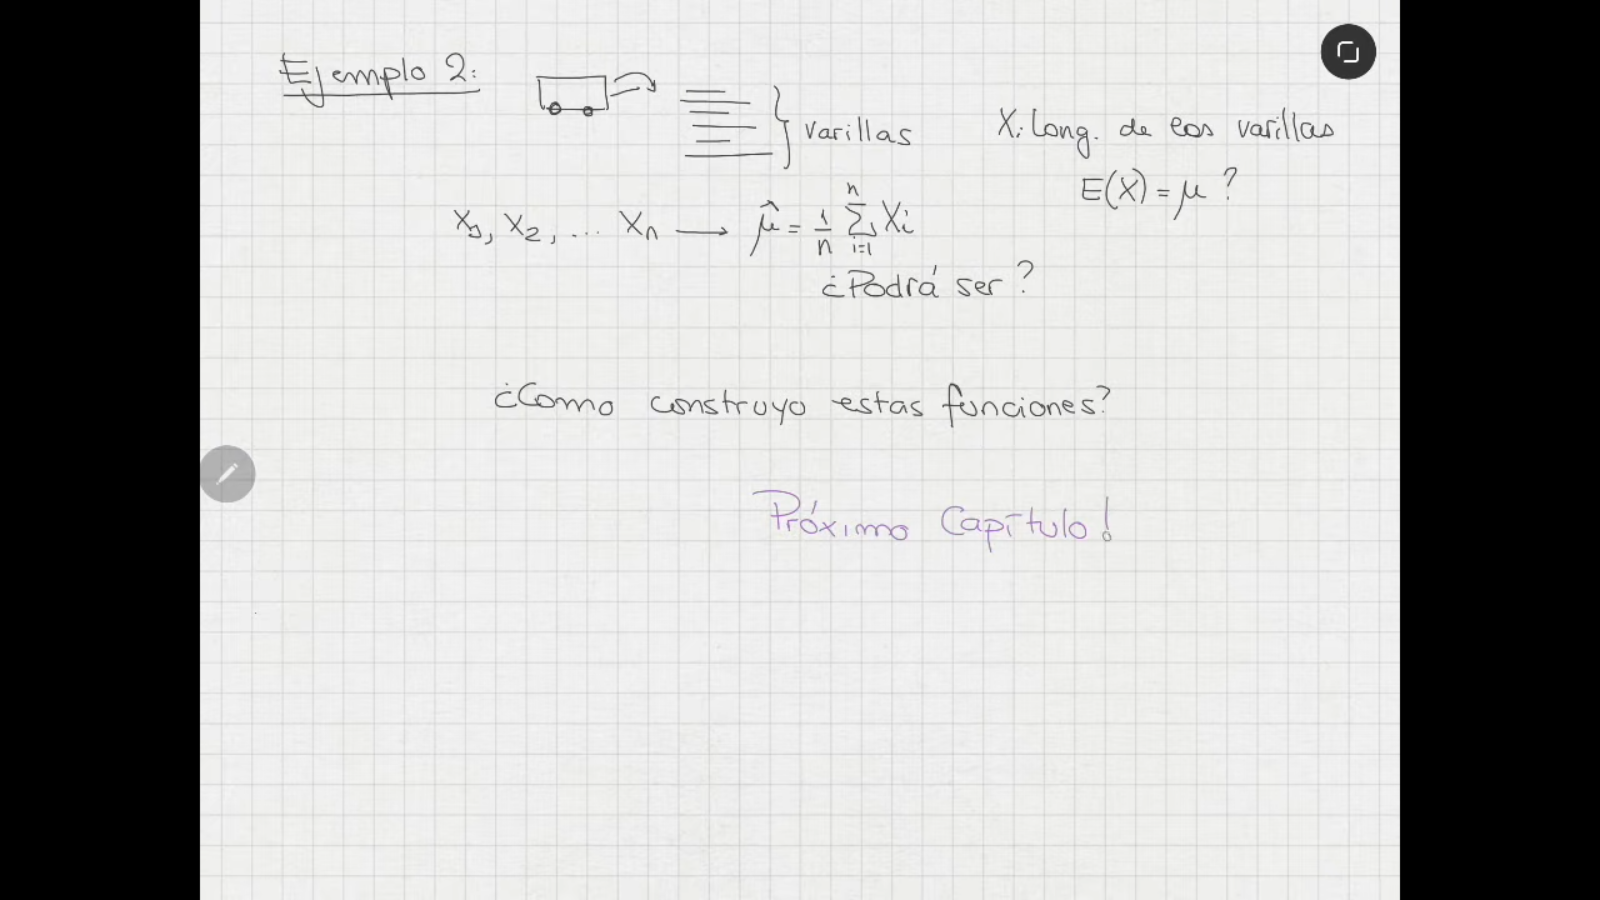 Ejemplo 2:
varillas
X: Long. de las varillas
E(X) = μ ?
X₁, X₂, ... Xₙ → μ̂ = 1/n ∑ᵢ₌₁ⁿ Xi
¿Podrá ser?
¿Como construyo estas funciones?
Próximo Capítulo!